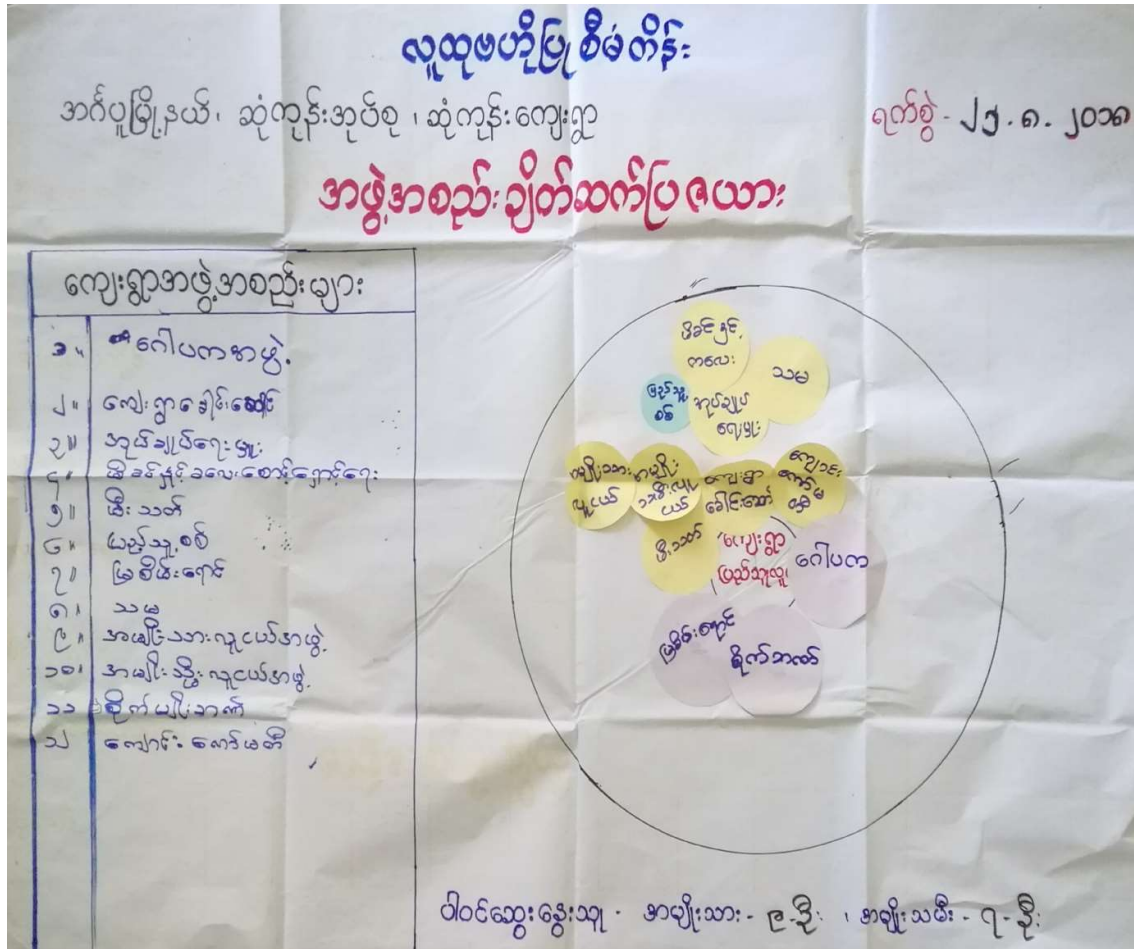 လူထုဗဟိုပြု စီမံကိန်း
အင်္ဂပူမြို့နယ်၊ ဆုံကုန်းအုပ်စု ၊ ဆုံကုန်းကျေးရွာ
ရက်စွဲ - ၂၅.၈.၂၀၁၈
အဖွဲ့အစည်းချိတ်ဆက်ပြဇယား
ကျေးရွာအဖွဲ့အစည်းများ
၁။ ဂေါပကအဖွဲ့
၂။ ကျေးရွာခေါင်းဆောင်
၃။ အုပ်ချုပ်ရေးမှူး
၄။ မိခင်နှင့်ခလေးစောင့်ရှောက်ရေး
၅။ မီးသတ်
၆။ ပြည်သူ့စစ်
၇။ မြစိမ်းရောင်
၈။ သမ
၉။ အမျိုးသားလူငယ်အဖွဲ့
၁၀။ အမျိုးသမီးလူငယ်အဖွဲ့
၁၁။ စိုက်ပျိုးဘဏ်
၁၂ ကျောင်းကော်မတီ
မိခင်နှင့်
ကလေး
သမ
ပြည်သူ့
စစ်
အုပ်ချုပ်
ရေးမှူး
အမျိုးသား
လူငယ်
အမျိုး
သမီးလူ
ငယ်
ကျေးရွာ
ခေါင်းဆောင်
ကျောင်း
ကော်မ
တီ
မီးသတ်
ကျေးရွာ
ပြည်သူလူ
ဂေါပက
မြစိမ်းရောင်
စိုက်ဘဏ်
ပါဝင်ဆွေးနွေးသူ - အမျိုးသား - ၉-ဦး ၊ အမျိုးသမီး - ၇-ဦး